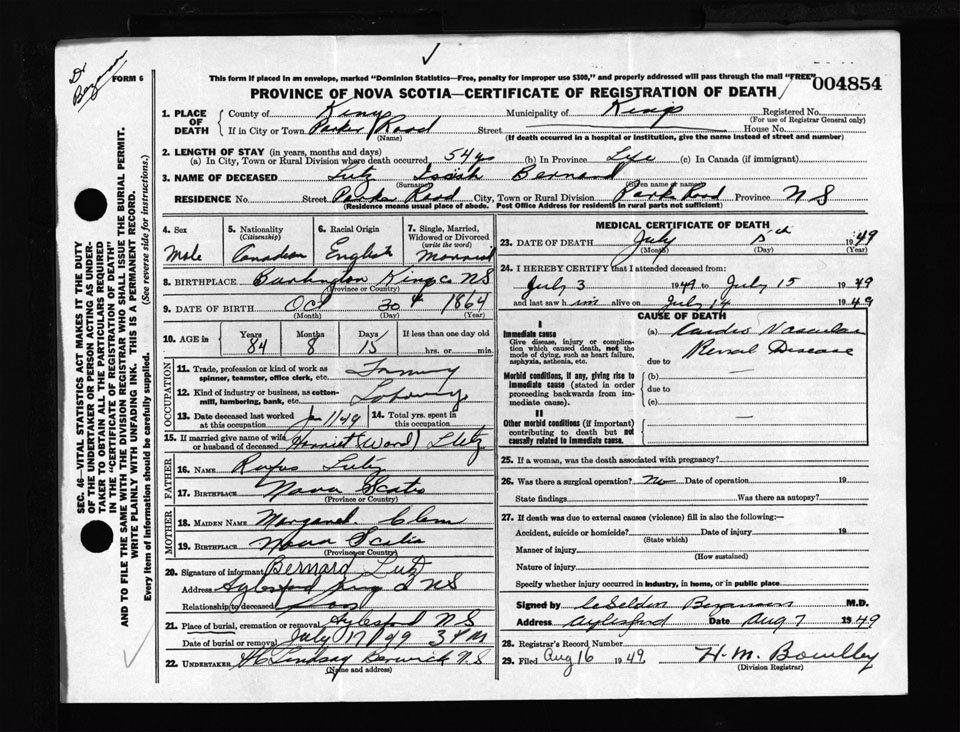 Dr
FORM 6
This form if placed in an envelope, marked "Dominion Statistics—Free, penalty for improper use $300," and properly addressed will pass through the mail "FREE"
004854
PROVINCE OF NOVA SCOTIA—CERTIFICATE OF REGISTRATION OF DEATH
1. PLACE OF DEATH
County of Kings Municipality of Kings Registered No.
(For use of Registrar General only)
If in City or Town Parker Road Street House No.
(Name) (If death occurred in a hospital or institution, give the name instead of street and number)
2. LENGTH OF STAY (in years, months and days)
(a) In City, Town or Rural Division where death occurred 54 ys (b) In Province Life (c) In Canada (if immigrant)
3. NAME OF DECEASED Lutz Isaiah Bernard
(Surname) (Given name or names)
RESIDENCE No. Street Parker Road City, Town or Rural Division Park Road Province N S
(Residence means usual place of abode. Post Office Address for residents in rural parts not sufficient)
4. Sex
Male
5. Nationality
(Citizenship)
Canadian
6. Racial Origin
English
7. Single, Married, Widowed or Divorced
(write the word)
Married
8. BIRTHPLACE Burlington Kings Co NS
(Province or Country)
9. DATE OF BIRTH Oct 30th 1864
(Month) (Day) (Year)
10. AGE in
Years Months Days If less than one day old
84 8 15 hrs. or min.
OCCUPATION
11. Trade, profession or kind of work as spinner, teamster, office clerk, etc.
12. Kind of industry or business, as cotton-mill, lumbering, bank, etc.
13. Date deceased last worked at this occupation Jan 1/49
14. Total yrs. spent in this occupation
15. If married give name of wife or husband of deceased Harriet (Ward) Lutz
FATHER
16. NAME Rufus Lutz
17. BIRTHPLACE Nova Scotia
(Province or Country)
MOTHER
18. MAIDEN NAME Margaret Clem
19. BIRTHPLACE Nova Scotia
(Province or Country)
20. Signature of informant Bernard Lutz
Address Aylesford Kings Co NS
Relationship to deceased Son
21. Place of burial, cremation or removal Aylesford NS
Date of burial or removal July 17/49 3 P M
22. UNDERTAKER H C Lindsay Berwick N.S
(Name and address)
MEDICAL CERTIFICATE OF DEATH
23. DATE OF DEATH July 1949
(Month) (Day)
24. I HEREBY CERTIFY that I attended deceased from:
July 3 1949 to July 15 1949
and last saw him alive on July 14 1949
CAUSE OF DEATH
I
Immediate cause
Give disease, injury or complication which caused death, not the mode of dying, such as heart failure, asphyxia, asthenia, etc.
(a) Cardio Vascular
Renal Disease
due to
Morbid conditions, if any, giving rise to immediate cause (stated in order proceeding backwards from immediate cause).
(b) —
due to
(c)
II
Other morbid conditions (if important) contributing to death but not causally related to immediate cause.
—
25. If a woman, was the death associated with pregnancy?
26. Was there a surgical operation? No Date of operation 19
State findings Was there an autopsy?
27. If death was due to external causes (violence) fill in also the following:—
Accident, suicide or homicide? Date of injury 19
(State which)
Manner of injury
(How sustained)
Nature of injury
Specify whether injury occurred in industry, in home, or in public place
Signed by M.D.
Address Aylesford Date Aug 7 1949
28. Registrar's Record Number
29. Filed Aug 16 1949
(Division Registrar)
SEC. 46—VITAL STATISTICS ACT MAKES IT THE DUTY
OF THE UNDERTAKER OR PERSON ACTING AS UNDER-
TAKER TO OBTAIN ALL THE PARTICULARS REQUIRED
IN THE "CERTIFICATE OF REGISTRATION OF DEATH"
AND TO FILE THE SAME WITH THE DIVISION REGISTRAR WHO SHALL ISSUE THE BURIAL PERMIT.
WRITE PLAINLY WITH UNFADING INK. THIS IS A PERMANENT RECORD.
Every item of information should be carefully supplied. (See reverse side for instructions.)